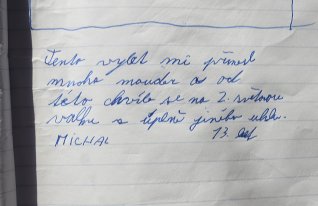 Tento výlet mi přinesl
mnoho moudra a od
této chvíle se na 2. světovou
válku s úplně jiného úhlu.
MICHAL 13. let